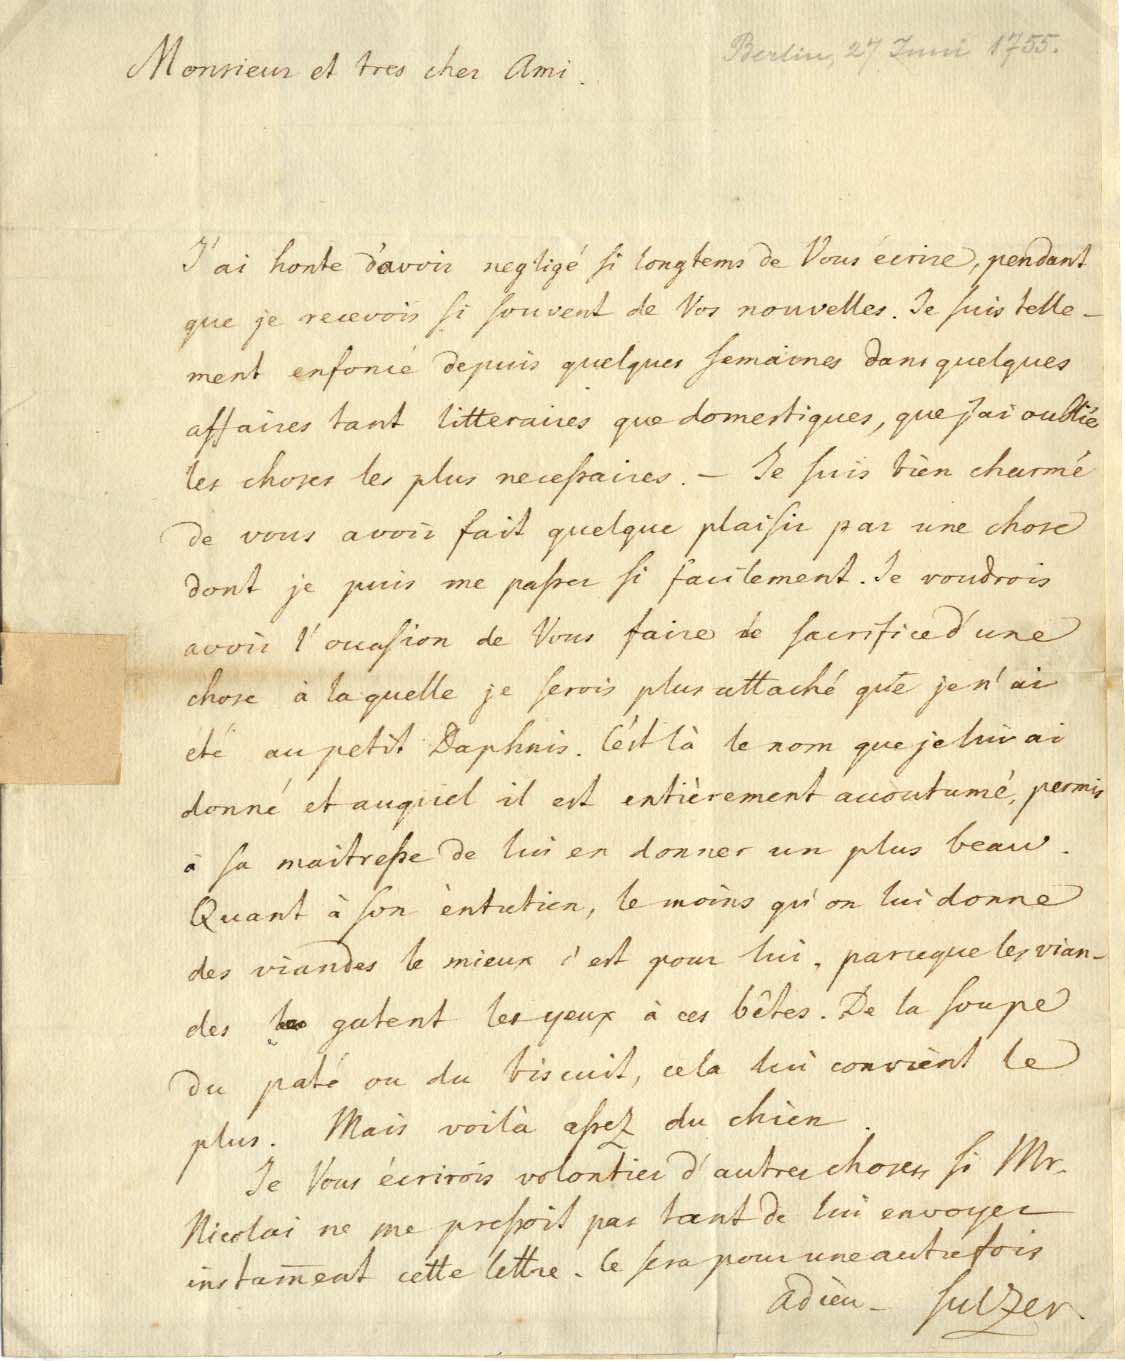 Berlin, 27 Juni 1755.
Monsieur et tres cher Ami.
J'ai honte d'avoir negligé si longtems de Vous écrire, pendant
que je recevois si souvent de Vos nouvelles. Je suis telle-
ment enfoncé depuis quelques semaines dans quelques
affaires tant litteraires que domestiques, que j'ai oublié
les choses les plus necessaires. – Je suis bien charmé
de vous avoir fait quelque plaisir par une chose
dont je puis me passer si facilement. Je voudrois
avoir l'occasion de Vous faire le sacrifice d'une
chose à laquelle je serois plus attaché que je n'ai
été au petit Daphnis. C'est là le nom que je lui ai
donné et auquel il est entièrement accoutumé, permis
à sa maitresse de lui en donner un plus beau.
Quant à son entretien, le moins qu'on lui donne
des viandes le mieux c'est pour lui, parceque les vian-
des gatent les yeux à ces bêtes. De la soupe
du paté ou du biscuit, cela lui convient le
plus. Mais voilà assez du chien.
Je Vous écrirois volontier d'autres choses, si Mr.
Nicolai ne me pressoit pas tant de lui envoyer
instamment cette lettre. Ce sera pour une autrefois
adieu – Sulzer.